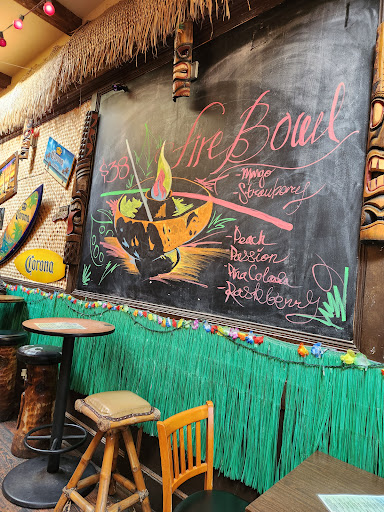 Fire Bowl
$38
- Mango
Strawberry
Peach
Passion
Pina Colada
Raspberry
Corona
Corona